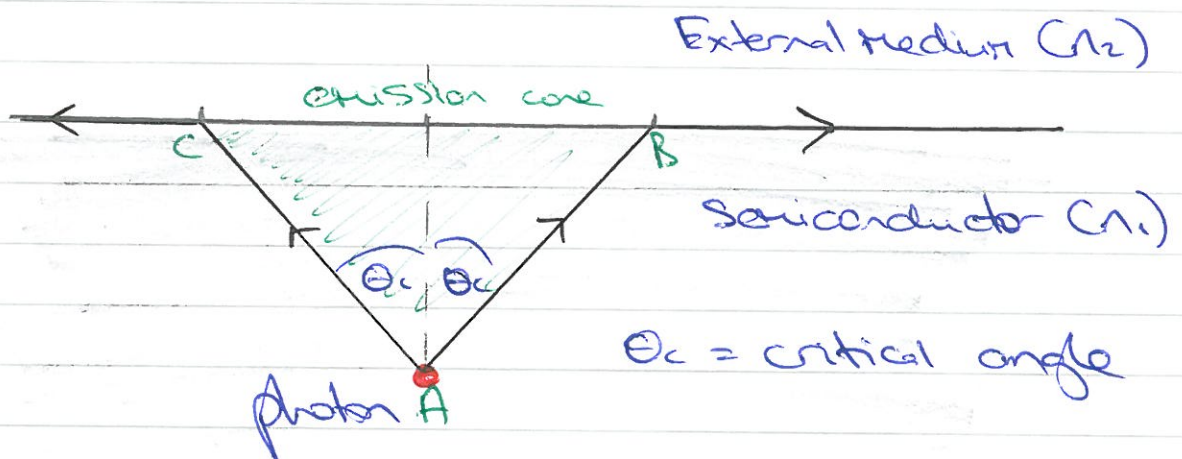 External Medium (n₂)
emission cone
C
B
Semiconductor (n₁)
θc θc
θc = critical angle
photon A